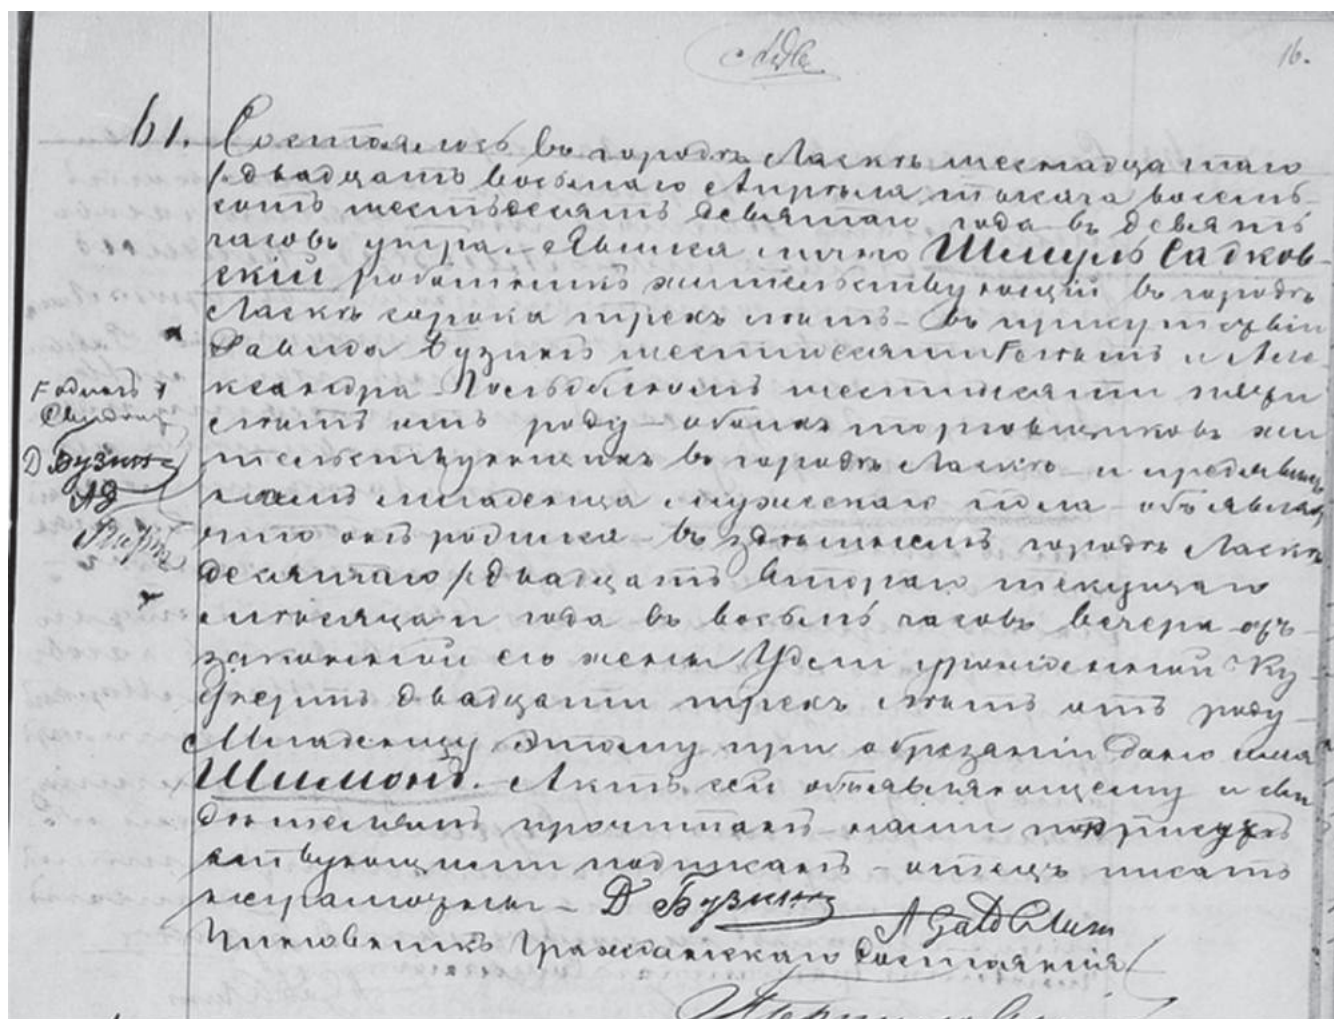 16.
61. Состоялось въ городѣ Ласкѣ шестнадцатаго
/двадцать восьмаго Апрѣля тысяча восемь-
сотъ шестьдесятъ девятаго года въ девять
часовъ утра. Явился лично Шмуль Садков-
скій работникъ жительствующій въ городѣ
Ласкѣ сорока трехъ лѣтъ – въ присутствіи
Давида Бузинъ шестидесяти лѣтъ и Але-
ксандра шестидесяти
лѣтъ отъ роду – обоихъ торговщиковъ жи-
тельствующихъ въ городѣ Ласкѣ – и предъявилъ
намъ младенца мужескаго пола – объявляя
что онъ родился – въ здѣшнемъ городѣ Ласкѣ
десятаго /двадцать втораго текущаго
мѣсяца и года въ восемь часовъ вечера отъ
законной его жены Удли урожденной Ку-
двадцати трехъ лѣтъ отъ роду –
Младенцу этому при обрѣзаніи дано имя
Шимонъ. – Актъ сей объявляющему и сви
дѣтелямъ прочитанъ нами
ствующими подписанъ – отецъ писать
неграмотны – Д Бузинъ
Чиновникъ Гражданскаго Состоянія
одинъ
Д Бузинъ